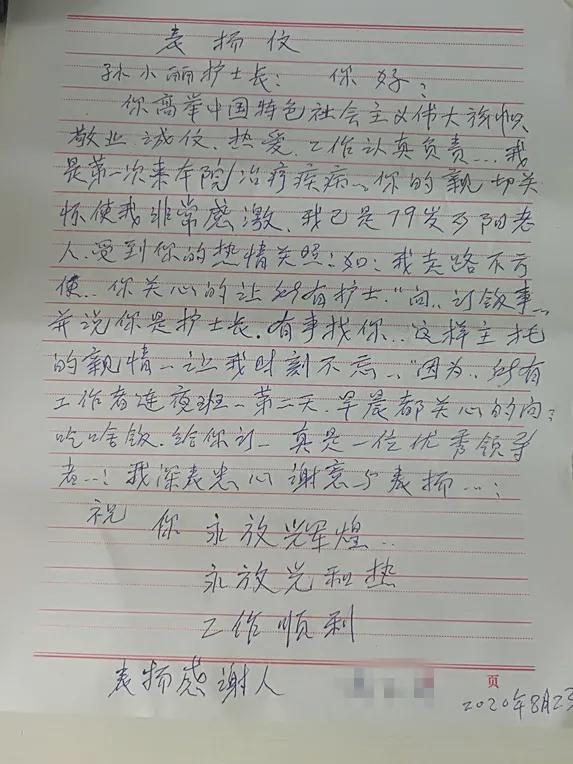 表扬信
孙小丽护士长: 你好:
你高举中国特色社会主义伟大旗帜
敬业、诚信、热爱、工作认真负责...我
是第一次来本院治疗疾病、你的亲切关
怀使我非常感激、我已是79岁夕阳老
人、受到你的热情关照:如:我走路不方
便..你关心的让所有护士"问..订饭事..
并说你是护士长.有事找你..这样主托
的亲情一让我时刻不忘.."因为..所有
工作者连夜班一第二天.早晨都关心的问:
吃啥饭.给你订一真是一位优秀领导
者...:我深表忠心谢意与表扬...:
祝你永放辉煌..
永放光和热
工作顺利
表扬感谢人
页
2020年8月23